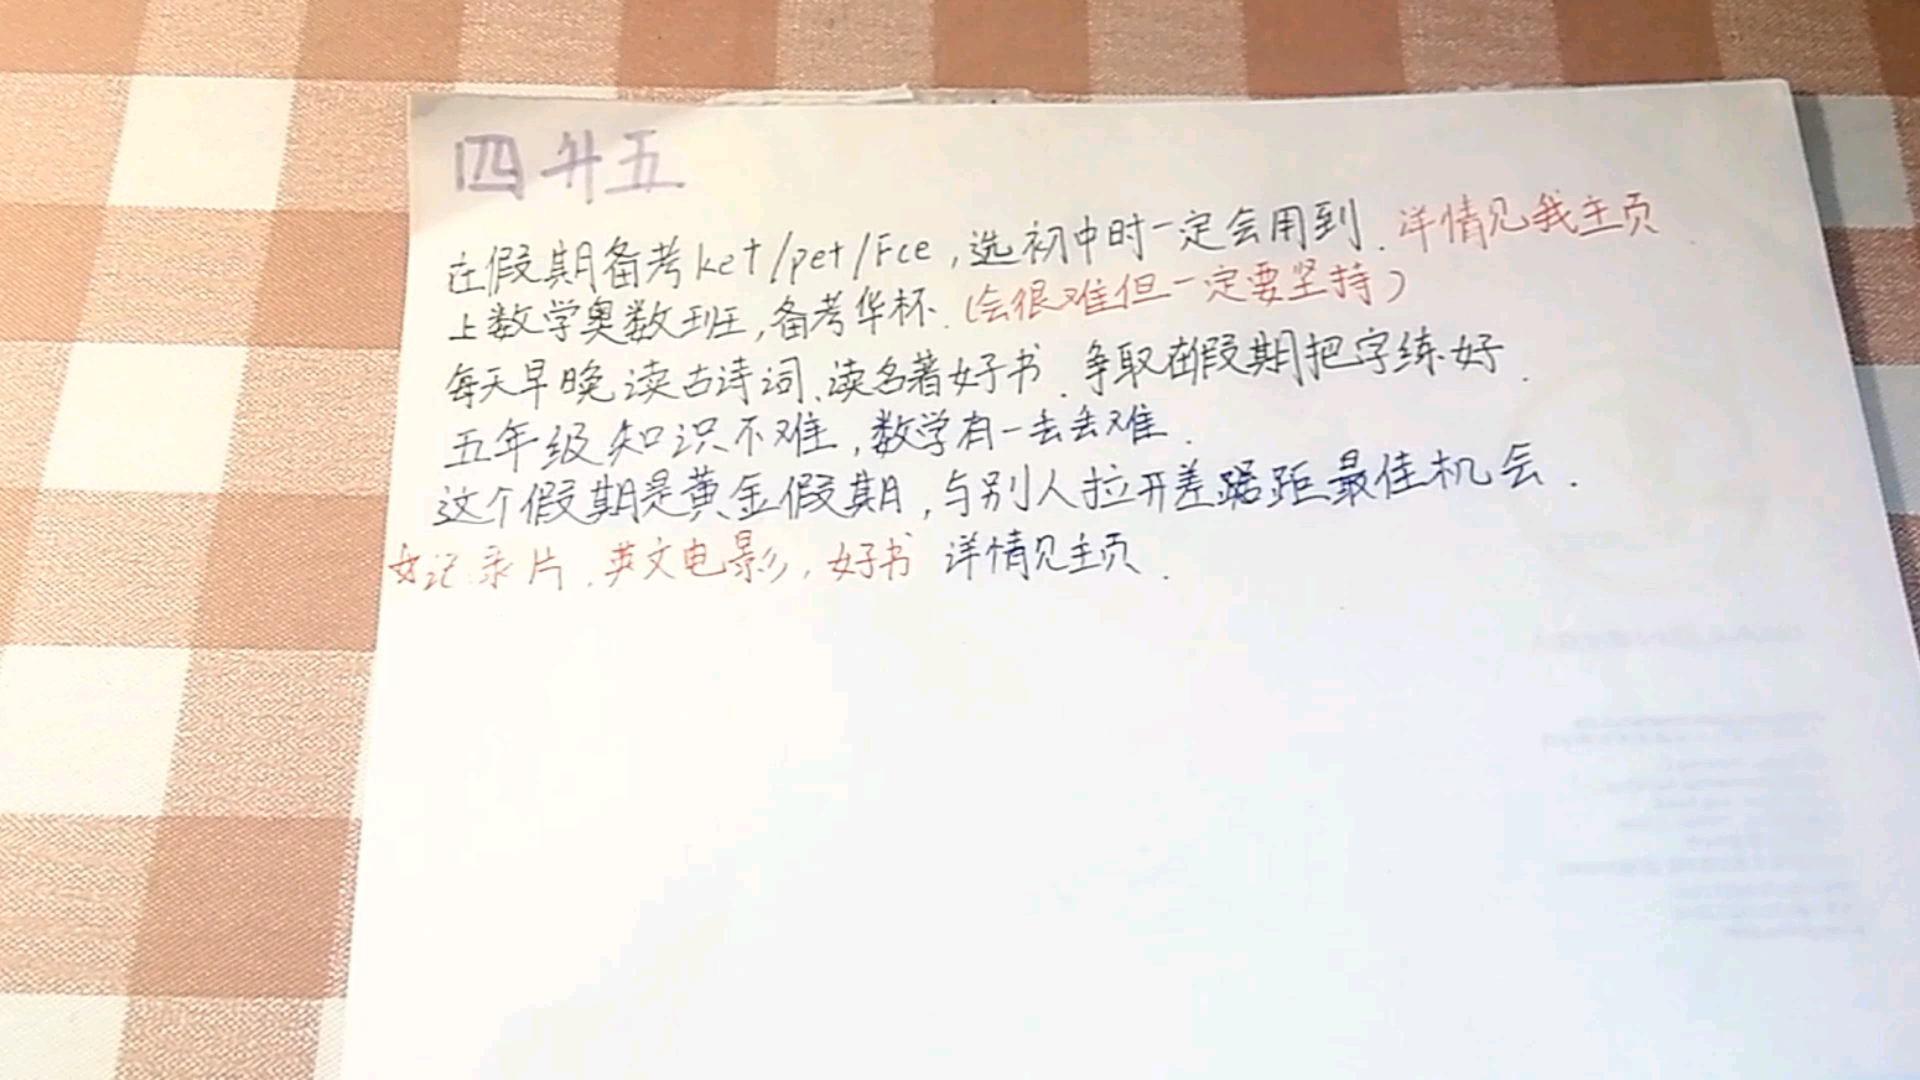 四升五
在假期备考ket/pet/Fce,选初中时一定会用到.详情见我主页
上数学奥数班,备考华杯.(会很难但一定要坚持)
每天早晚读古诗词、读名著好书.争取在假期把字练好.
五年级知识不难,数学有一丢丢难.
这个假期是黄金假期,与别人拉开差距最佳机会.
记录片.英文电影,好书 详情见主页.